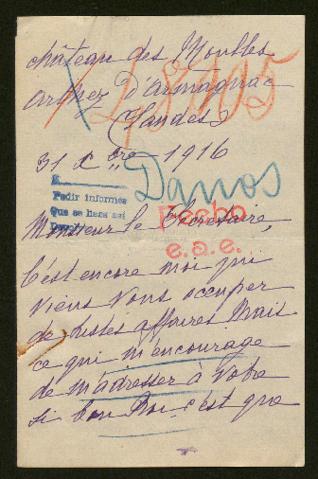 château des Moulles
12805
Arthez d'Armagnac
(Landes)
31 Xbre 1916
Danos
Pedir informes
Que se hara asi
Fecho
Monsieur le Secretaire,
e.a.e.
C'est encore moi qui
viens vous occuper
de tristes affaires Mais
ce qui m'encourage
de m'adresser à votre
si bon Roi c'est que